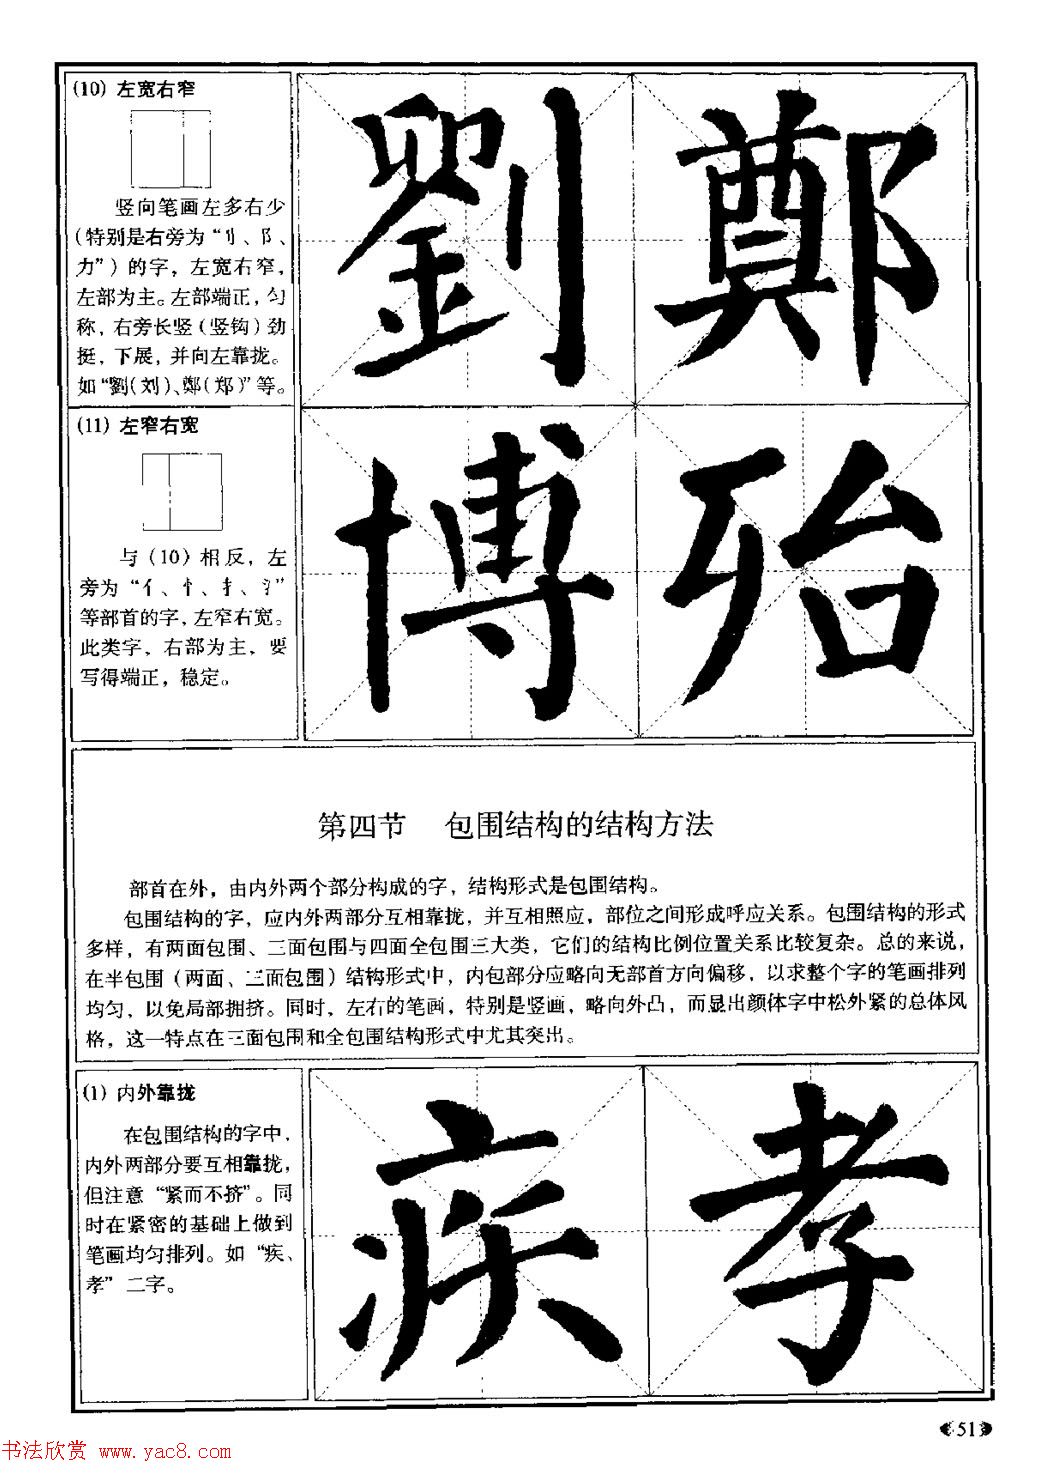 (10) 左宽右窄
竖向笔画左多右少
(特别是右旁为“刂、阝、
力”)的字，左宽右窄，
左部为主。左部端正，匀
称，右旁长竖(竖钩)劲
挺，下展，并向左靠拢。
如“劉(刘)、鄭(郑)”等。
劉 鄭
(11) 左窄右宽
与(10)相反，左
旁为“亻、忄、扌、氵”
等部首的字，左窄右宽。
此类字，右部为主，要
写得端正，稳定。
博 殆
第四节 包围结构的结构方法
部首在外，由内外两个部分构成的字，结构形式是包围结构。
包围结构的字，应内外两部分互相靠拢，并互相照应，部位之间形成呼应关系。包围结构的形式
多样，有两面包围、三面包围与四面全包围三大类，它们的结构比例位置关系比较复杂。总的来说，
在半包围(两面、三面包围)结构形式中，内包部分应略向无部首方向偏移，以求整个字的笔画排列
均匀，以免局部拥挤。同时，左右的笔画，特别是竖画，略向外凸，而显出颜体字中松外紧的总体风
格，这一特点在三面包围和全包围结构形式中尤其突出。
(1) 内外靠拢
在包围结构的字中，
内外两部分要互相靠拢，
但注意“紧而不挤”。同
时在紧密的基础上做到
笔画均匀排列。如“疾、
孝”二字。
疾 孝
51
书法欣赏 www.yac8.com